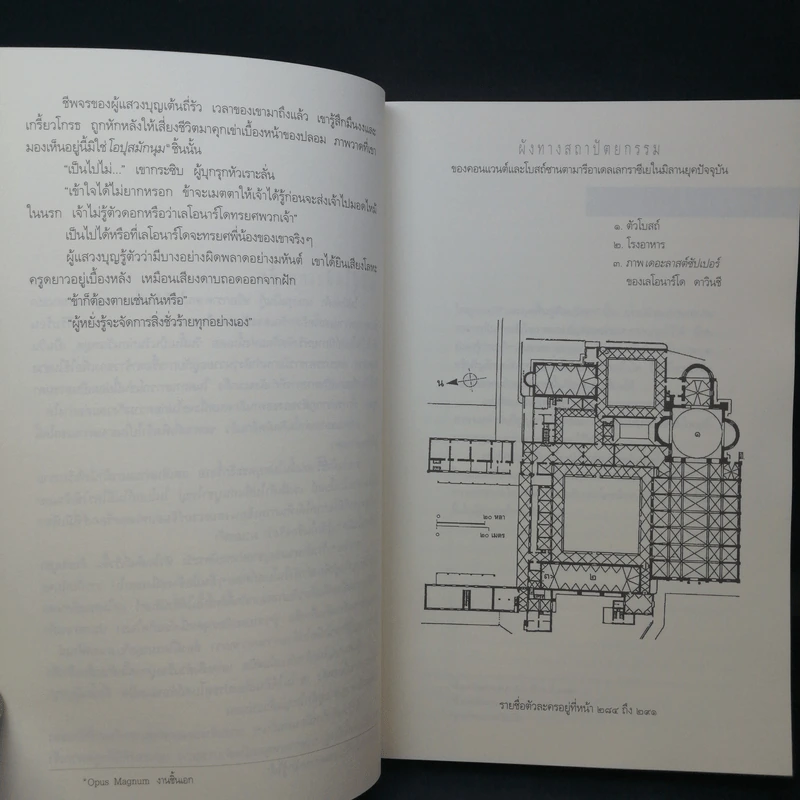 ชีพจรของผู้แสวงบุญเต้นถี่รัว เวลาของเขามาถึงแล้ว เขารู้สึกมึนงงและ
เกรี้ยวโกรธ ถูกหักหลังให้เสี่ยงชีวิตมาคุกเข่าเบื้องหน้าของปลอม ภาพวาดที่เขา
มองเห็นอยู่นี้มิใช่โอปุสมักนุม*ชิ้นนั้น
"เป็นไปไม่..." เขากระซิบ ผู้บุกรุกหัวเราะลั่น
"เข้าใจได้ไม่ยากหรอก ข้าจะเมตตาให้เจ้าได้รู้ก่อนจะส่งเจ้าไปมอดไหม้
ในนรก เจ้าไม่รู้ตัวดอกหรือว่าเลโอนาร์โดทรยศพวกเจ้า"
เป็นไปได้หรือที่เลโอนาร์โดจะทรยศพี่น้องของเขาจริงๆ
ผู้แสวงบุญรู้ตัวว่ามีบางอย่างผิดพลาดอย่างมหันต์ เขาได้ยินเสียงโลหะ
ครูดยาวอยู่เบื้องหลัง เหมือนเสียงดาบถอดออกจากฝัก
"ข้าก็ต้องตายเช่นกันหรือ"
"ผู้หยั่งรู้จะจัดการสิ่งชั่วร้ายทุกอย่างเอง"
*Opus Magnum งานชิ้นเอก
ผังทางสถาปัตยกรรม
ของคอนแวนต์และโบสถ์ซานตามารีอาเดลเลกราซีเยในมิลานยุคปัจจุบัน
๑. ตัวโบสถ์
๒. โรงอาหาร
๓. ภาพเดอะลาสต์ซัปเปอร์
ของเลโอนาร์โด ดาวินชี
น
๑
๐ ๒๐ หลา
๐ ๒๐ เมตร
๓ ๒
รายชื่อตัวละครอยู่ที่หน้า ๒๘๔ ถึง ๒๙๑